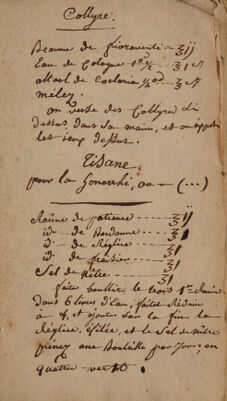 Collyre.
Beaume de fioraventi -- ʒij
Eau de Cologne 1 o/2 -- ʒ1 ß
alcool de Coclaria 1/2 -- ʒ ß
mélez.
on verse des Collyre ci
dessus dans sa main, et on
les ieux dessus.
Tisane,
pour la Gonorrhé, ou - (...)
Racine de patience ---- ʒij
id. de Bardanne -- ʒij
id. de Réglise --- ʒ1
id. de fraisier --- ʒ1
Sel de Nitre ---- ʒ1
faite bouillir les trois 1eres Racine
dans 6 livres d'Eau, faites Réduire
à 4, et ajouter sur la fin la
Réglise, éfilée, et le Sel de Nitre
prénez une Bouteille par Jour, en
quatre verre.